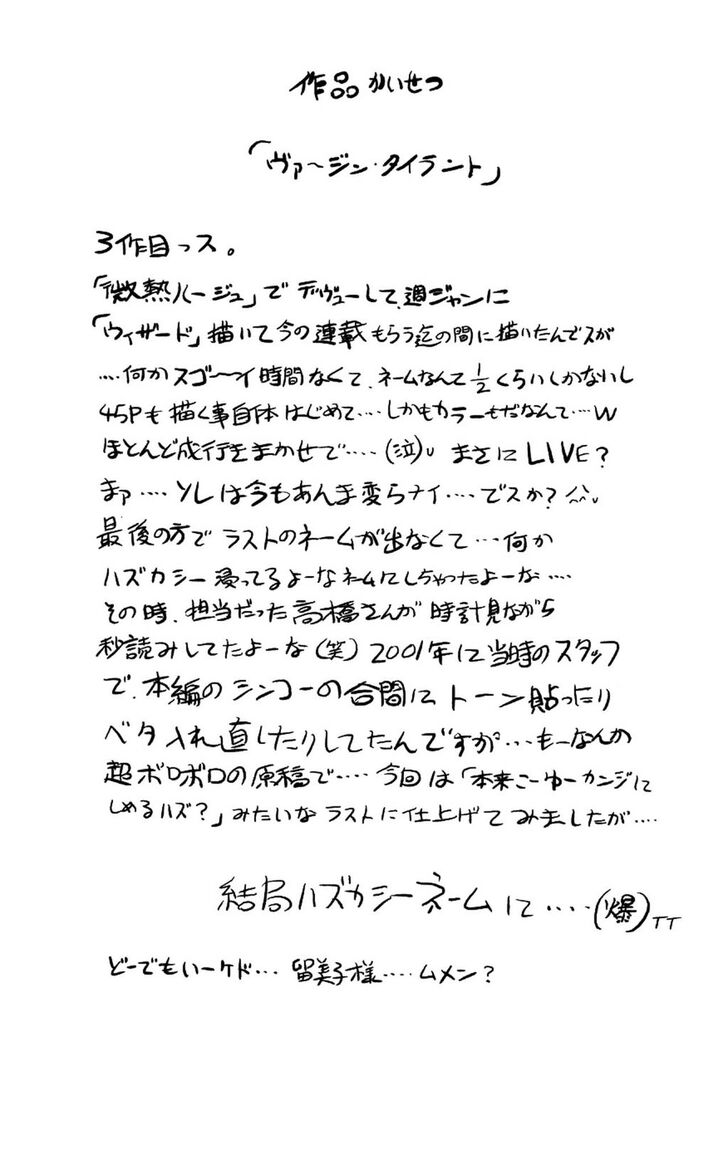 作品かいせつ
「ヴァ〜ジン・タイラント」
3作目っス。
「微熱ルージュ」でデヴューして、週ジャンに
「ウィザード」描いて今の連載もらう迄の間に描いたんでスが
‥‥何かスゴ〜イ時間なくて、ネームなんて1/2くらいしかないし
45Pも描く事自体はじめて‥‥しかもカラーもだなんて‥‥w
ほとんど成行きまかせで‥‥(泣)。まさにLIVE?
まァ‥‥ソレは今もあんま変らナイ‥‥でスか?^^;
最後の方でラストのネームが出なくて‥‥何か
ハズカシー浸ってるよーなネームにしちゃったよーな‥‥
その時、担当だった高橋さんが時計見ながら
秒読みしてたよーな(笑)2001年に当時のスタッフ
で、本編のシンコーの合間にトーン貼ったり
ベタ入れ直したりしてたんですが‥‥もーなんか
超ボロボロの原稿で‥‥今回は「本来こーゆーカンジに
しめるハズ?」みたいなラストに仕上げてみましたが‥‥
結局ハズカシーネームに‥‥(爆)TT
どーでもいーケド‥‥留美子様‥‥ムメン?